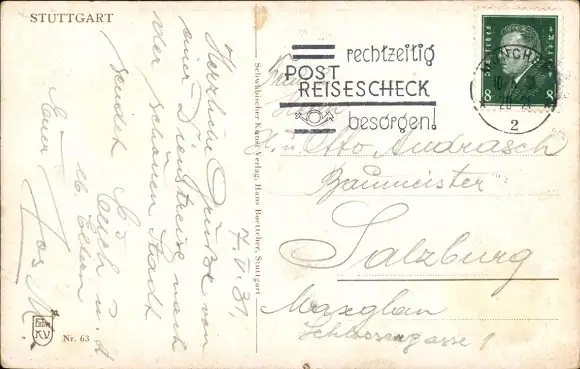 STUTTGART
7. V. 31.
Herzliche Grüße von
einer Dienstreise nach
der schönen Stadt
sendet Euch u. d
lb. Eltern
Euer
Nr. 63
Schwäbischer Kunst-Verlag, Hans Boettcher, Stuttgart
rechtzeitig
POST
REISESCHECK
besorgen!
MÜNCHEN
2
Deutsches Reich
8 8
Otto Andrasch
Baumeister
Salzburg
Maxglan
Schlossergasse 1